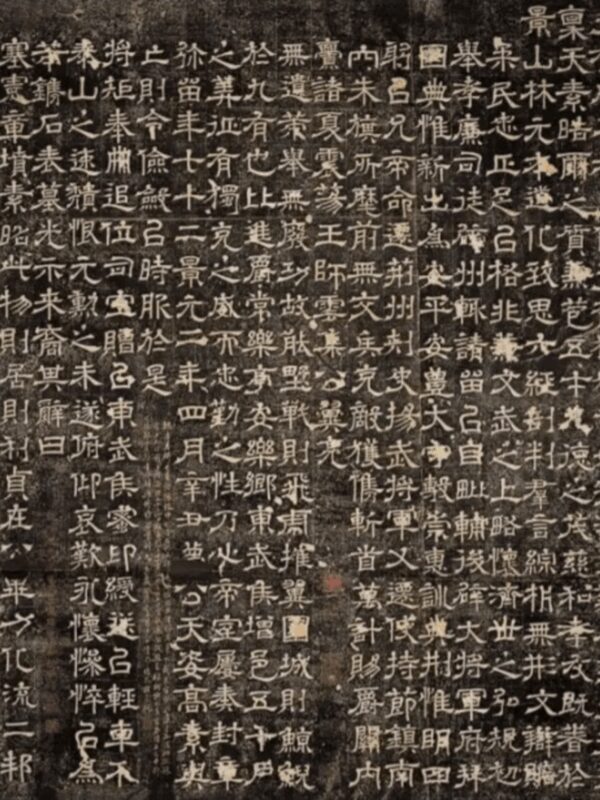 稟天素皓爾之質兼苞五才九德之茂慈和孝友既著於
景山林元本道化致思六經剖判群言綜析無形文辯贍
柔民忠正足以格非兼文武之上略懷濟世之弘規初
舉孝廉司徒辟州輒請留以自毗輔後辟大將軍府拜
國典惟新出為安平安豐大守敷崇惠訓典刑惟明四
躬以允帝命遷荊州刺史揚武將軍又遷使持節鎮南
內朱旗所麾前無交兵克敵獲儁斬首萬計賜爵關內
賣諸夏震蕩王師雲集公翼亮
無遺策舉無廢功故能野戰則飛虜摧翼圍城則鯨鯢
於九有也比進爵常樂亭安樂鄉東武侯增邑五千戶
之美征有獨克之威而忠勤之性乃心帝室屢奏封章
弥留年七十二景元二年四月辛丑薨公天姿高素與
亡則令儉斂以時服於是
將矩奉冊追位司空贈以東武侯蜜印綬送以輕車不
泰山之速頹恨元勳之未遂俯仰哀歎永懷慘悴以為
等鐫石表墓光示來裔其辭曰
塞憲章墳素昭此物則居則利貞在公畢力化流二邦